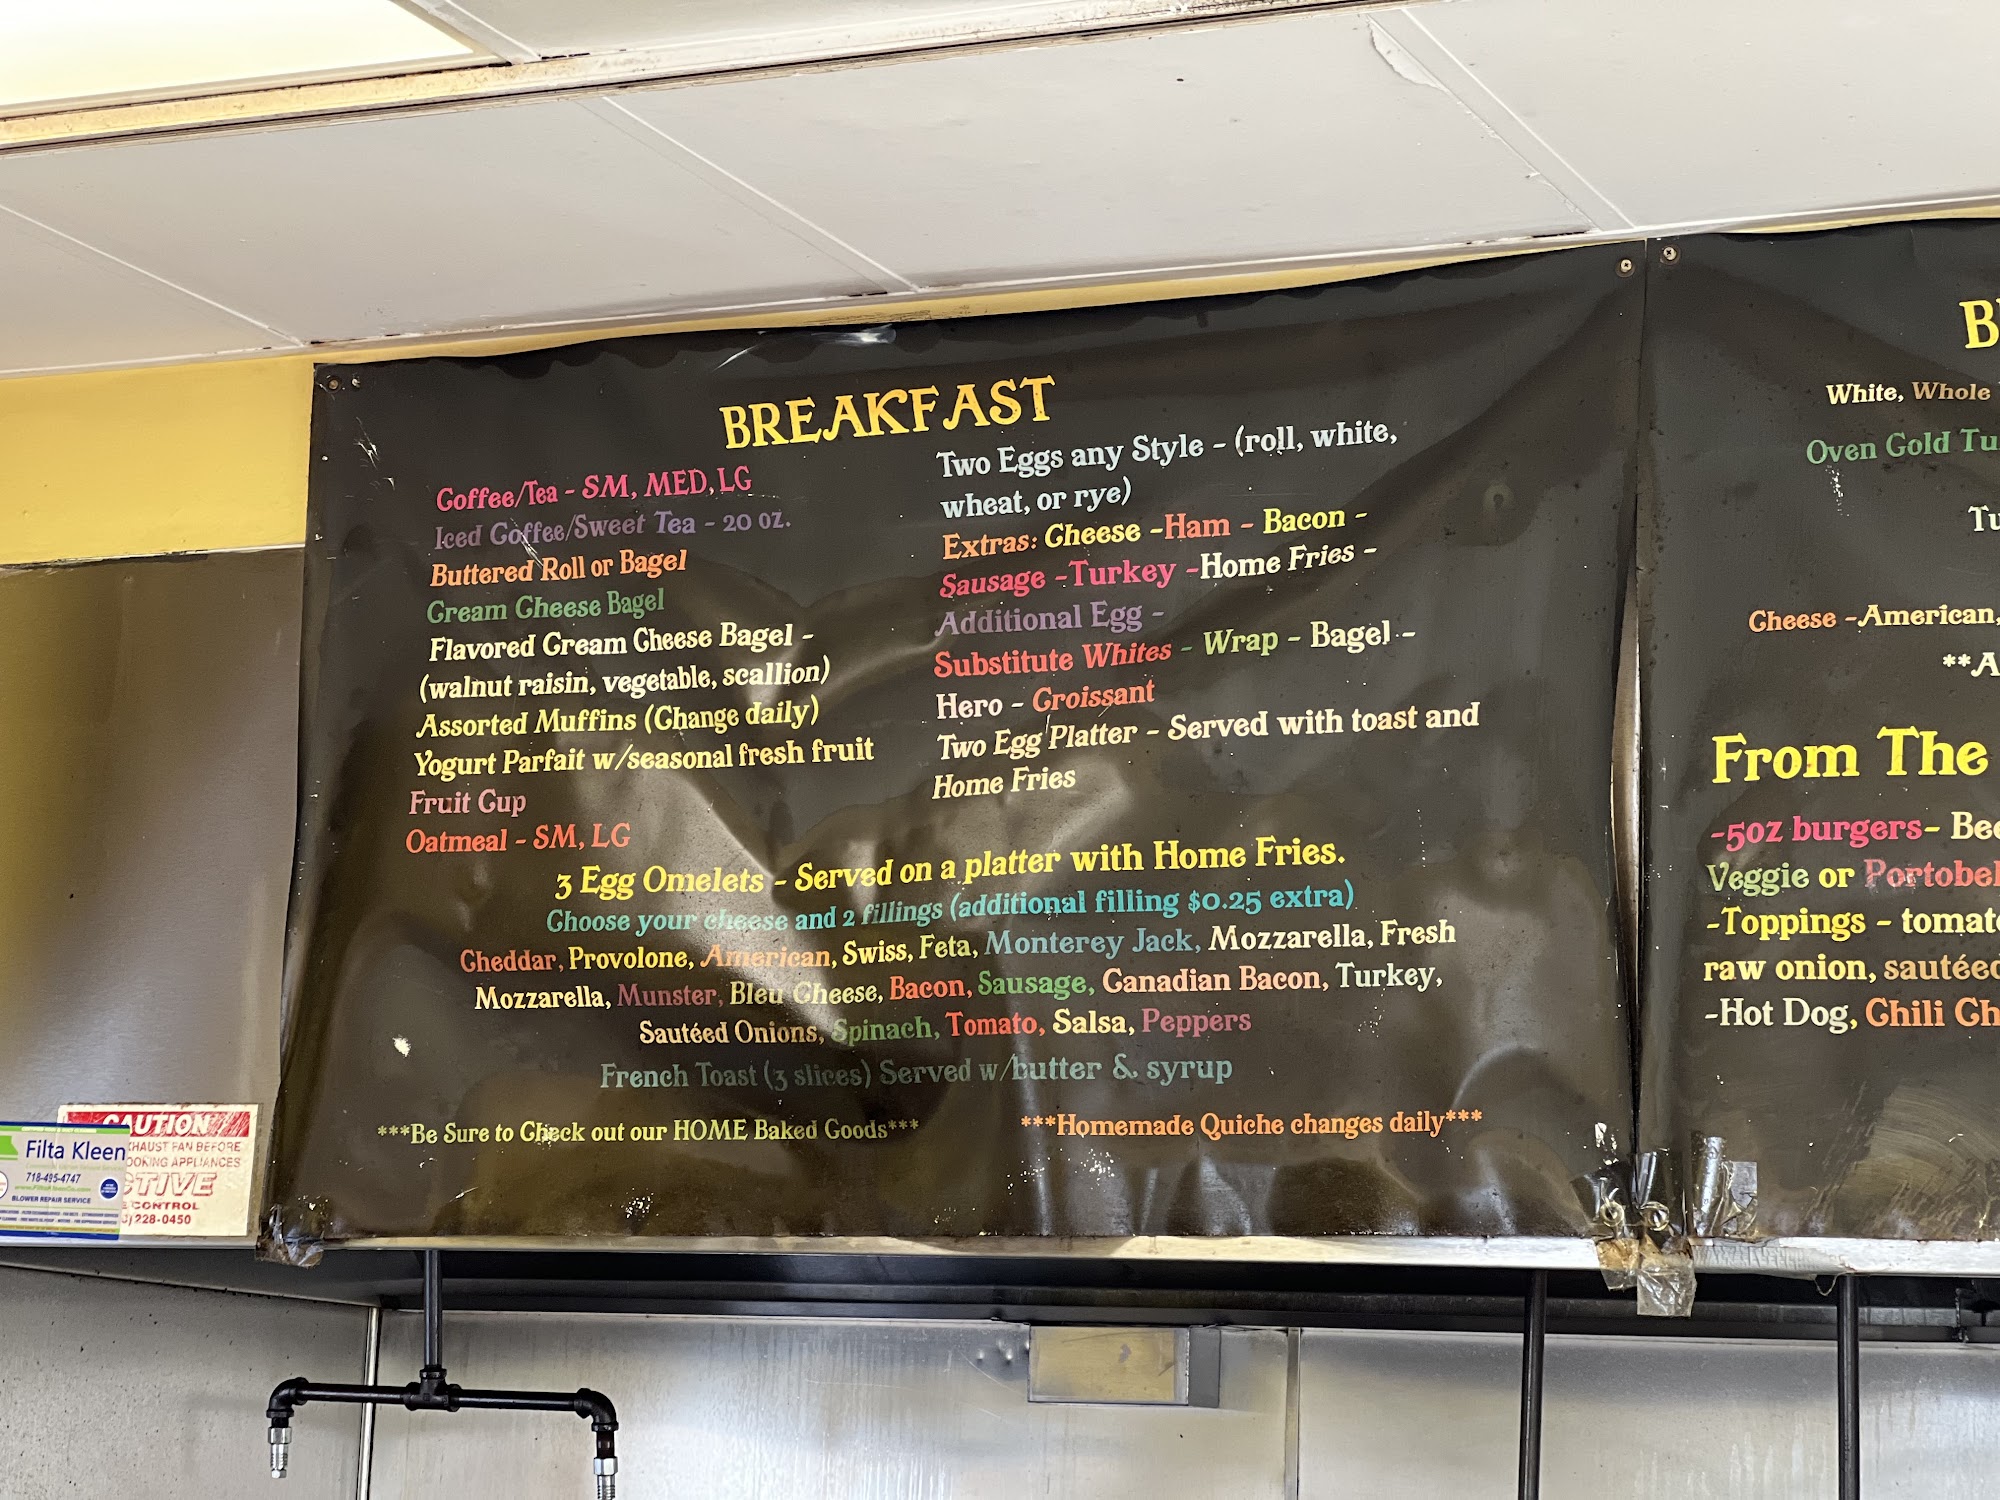 BREAKFAST
Coffee/Tea - SM, MED, LG
Iced Coffee/Sweet Tea - 20 oz.
Buttered Roll or Bagel
Cream Cheese Bagel
Flavored Cream Cheese Bagel -
(walnut raisin, vegetable, scallion)
Assorted Muffins (Change daily)
Yogurt Parfait w/seasonal fresh fruit
Fruit Cup
Oatmeal - SM, LG
Two Eggs any Style - (roll, white,
wheat, or rye)
Extras: Cheese -Ham - Bacon -
Sausage -Turkey -Home Fries -
Additional Egg -
Substitute Whites - Wrap - Bagel -
Hero - Croissant
Two Egg Platter - Served with toast and
Home Fries
3 Egg Omelets - Served on a platter with Home Fries.
Choose your cheese and 2 fillings (additional filling $0.25 extra)
Cheddar, Provolone, American, Swiss, Feta, Monterey Jack, Mozzarella, Fresh
Mozzarella, Munster, Bleu Cheese, Bacon, Sausage, Canadian Bacon, Turkey,
Sautéed Onions, Spinach, Tomato, Salsa, Peppers
French Toast (3 slices) Served w/butter & syrup
***Be Sure to Check out our HOME Baked Goods***
***Homemade Quiche changes daily***
B
White, Whole
Oven Gold Tu
Tu
Cheese -American,
**A
From The
-5oz burgers- Bee
Veggie or Portobel
-Toppings - tomato
raw onion, sautéed
-Hot Dog, Chili Ch
CAUTION
EXHAUST FAN BEFORE
COOKING APPLIANCES
CTIVE
E CONTROL
228-0450
Filta Kleen
718-495-4747
www.FiltaKleenCo.com
BLOWER REPAIR SERVICE